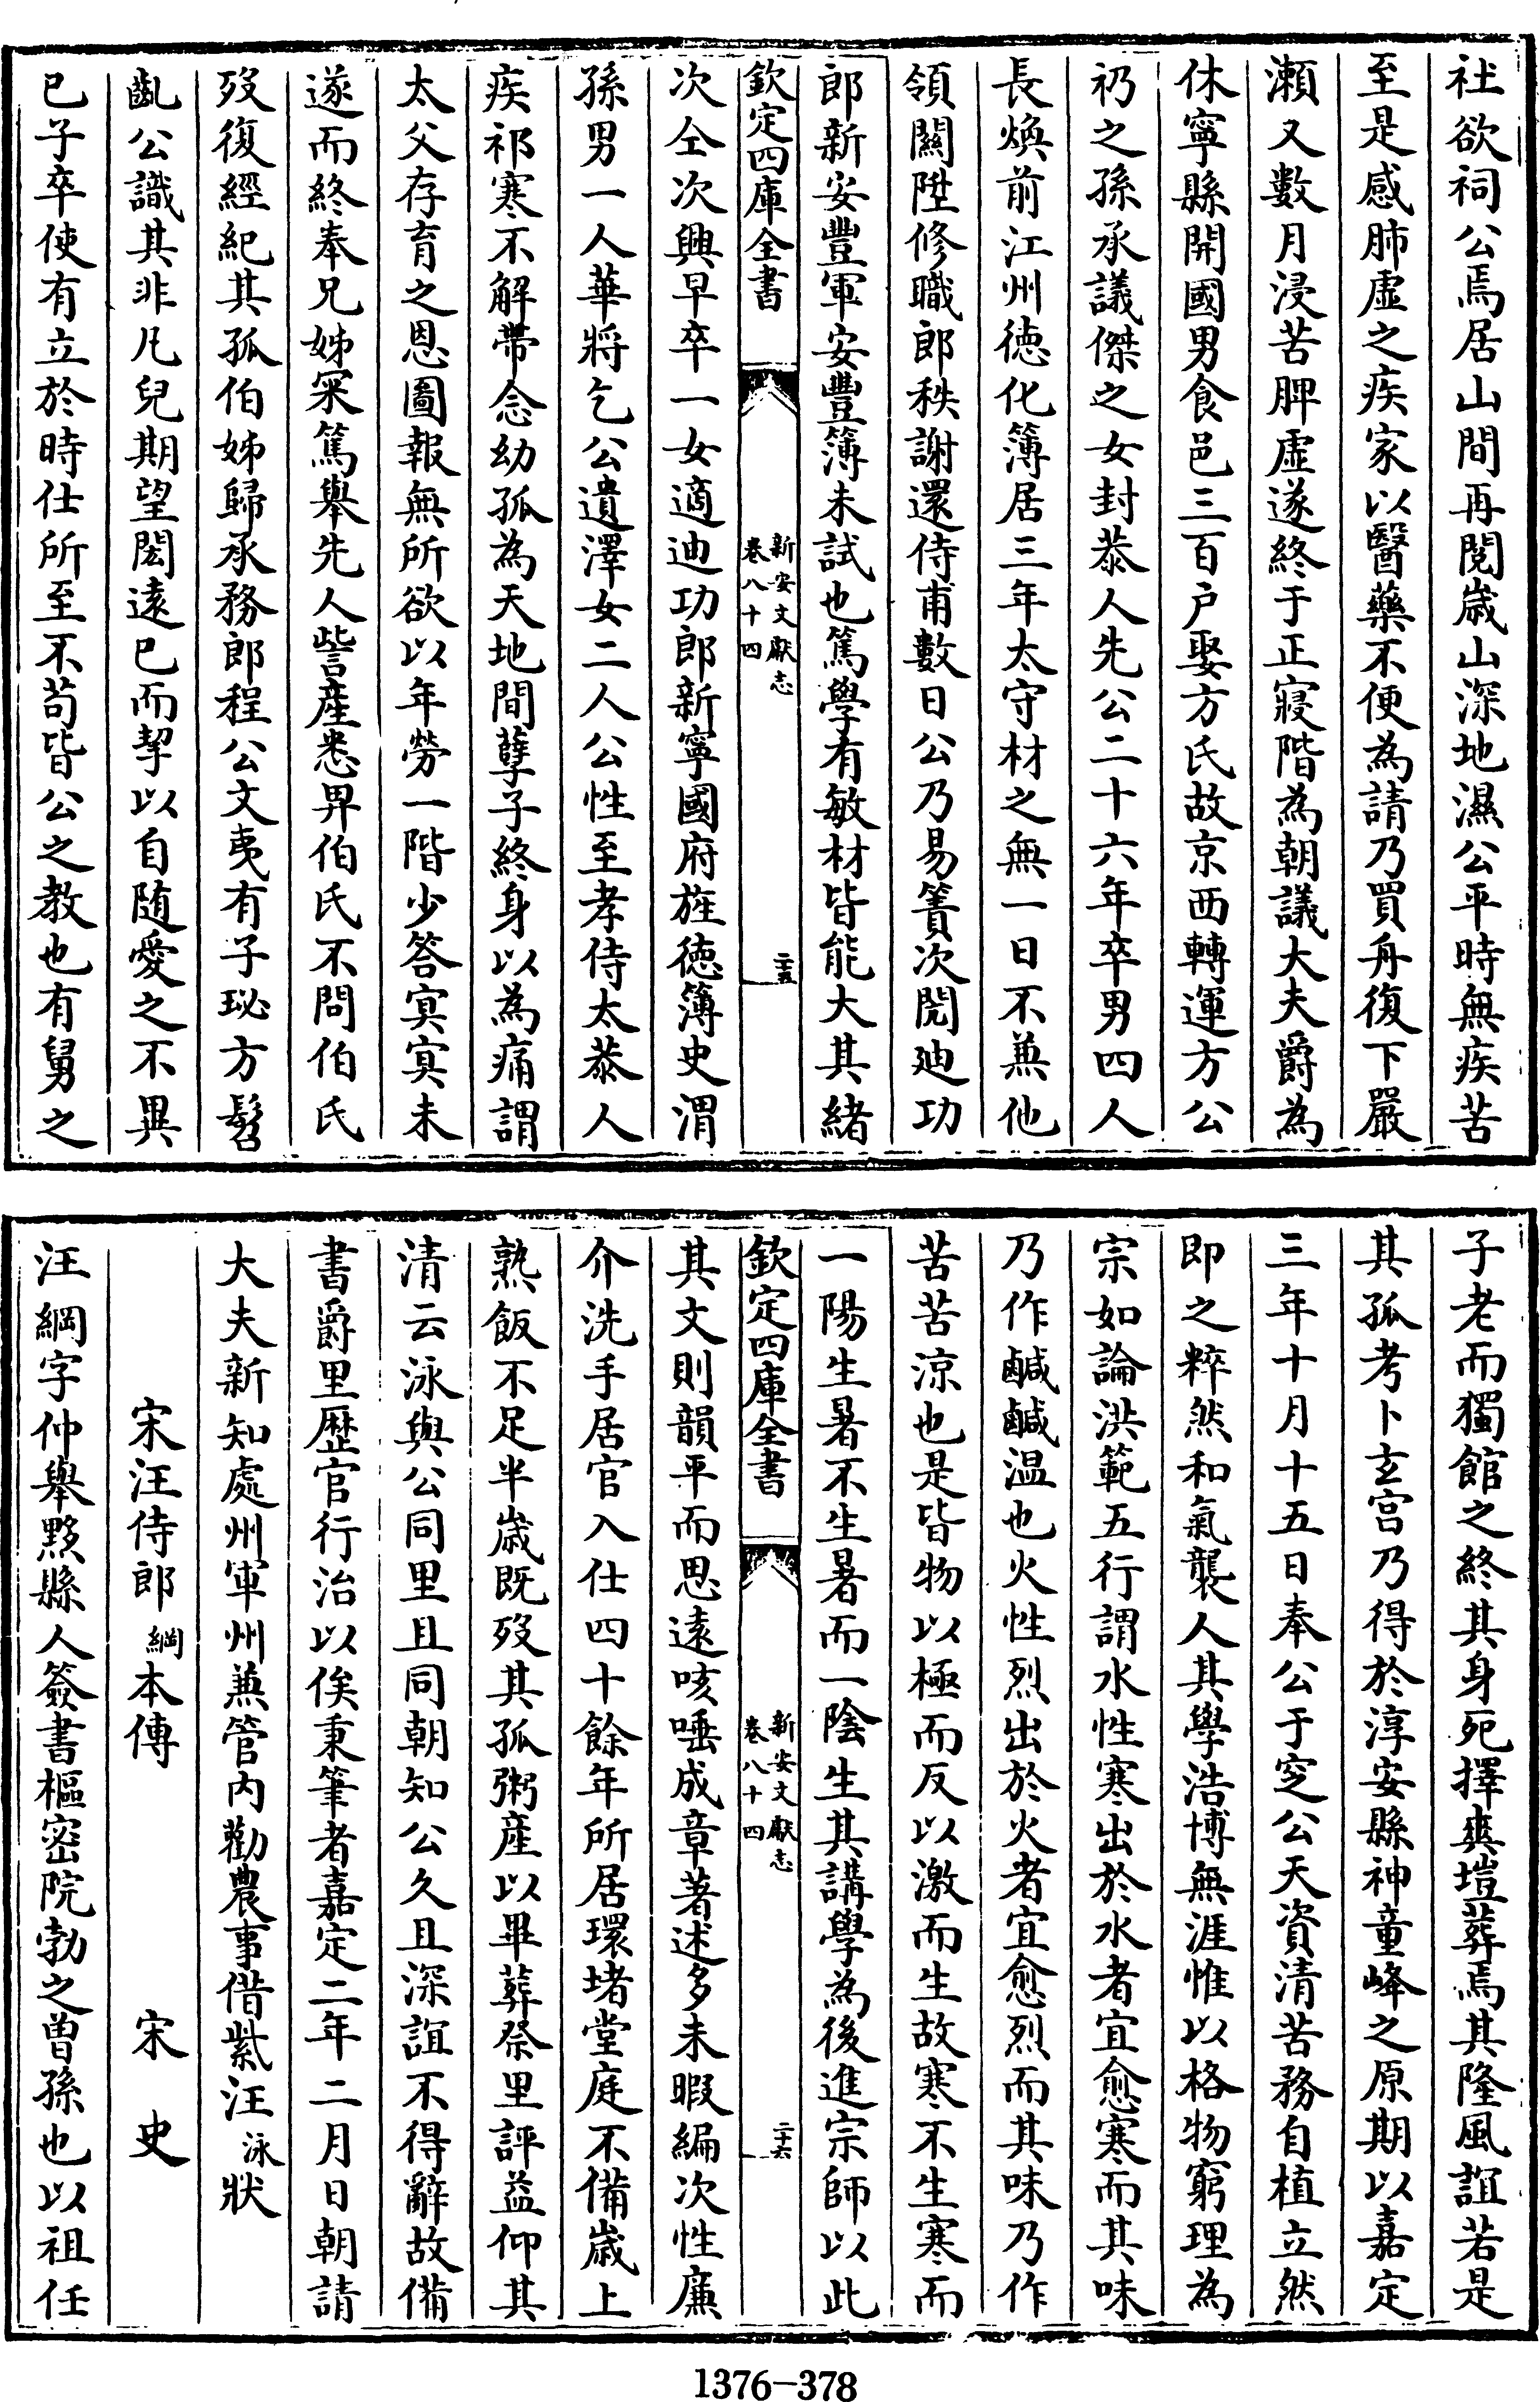 社欲祠公焉居山間再閱歳山深地濕公平時無疾苦
至是感肺虛之疾家以醫藥不便為請乃買舟復下嚴
瀨又數月浸苦脾虛遂終于正寢階為朝議大夫爵為
休寧縣開國男食邑三百户娶方氏故京西轉運方公
礽之孫承議傑之女封恭人先公二十六年卒男四人
長煥前江州徳化簿居三年太守材之無一日不兼他
領闗陞修職郎秩謝還侍甫數日公乃易簀次閲廸功
郎新安豐軍安豐簿未試也篤學有敏材皆能大其緒
欽定四庫全書
新安文獻志
卷八十四
二十五
次仝次興早卒一女適迪功郎新寧國府旌徳簿史渭
孫男一人華將乞公遺澤女二人公性至孝侍太恭人
疾祁寒不解帶念幼孤為天地間孽子終身以為痛謂
太父存育之恩圖報無所欲以年勞一階少答寘寘未
遂而終奉兄姊宷篤舉先人訾産悉畀伯氏不問伯氏
歿復經紀其孤伯姊歸承務郎程公文夷有子珌方髫
齓公識其非凡兒期望閎遠已而挈以自随愛之不異
已子卒使有立於時仕所至不苟皆公之教也有舅之
子老而獨館之終其身死擇爽塏葬焉其隆風誼若是
其孤考卜玄宫乃得於淳安縣神童峰之原期以嘉定
三年十月十五日奉公于窆公天資清苦務自植立然
即之粹然和氣襲人其學浩博無涯惟以格物窮理為
宗如論洪範五行謂水性寒出於水者宜愈寒而其味
乃作鹹鹹温也火性烈出於火者宜愈烈而其味乃作
苦苦涼也是皆物以極而反以激而生故寒不生寒而
一陽生暑不生暑而一陰生其講學為後進宗師以此
欽定四庫全書
新安文獻志
卷八十四
二十六
其文則韻平而思遠咳唾成章著述多未暇編次性廉
介洗手居官入仕四十餘年所居環堵堂庭不備歳上
熟飯不足半歳既歿其孤粥産以畢葬祭里評益仰其
清云泳與公同里且同朝知公久且深誼不得辭故備
書爵里歴官行治以俟秉筆者嘉定二年二月日朝請
大夫新知處州軍州兼管内勸農事借紫汪泳狀
宋汪侍郎綱本傳 宋史
汪綱字仲舉黟縣人簽書樞密院勃之曽孫也以祖任
1376-378